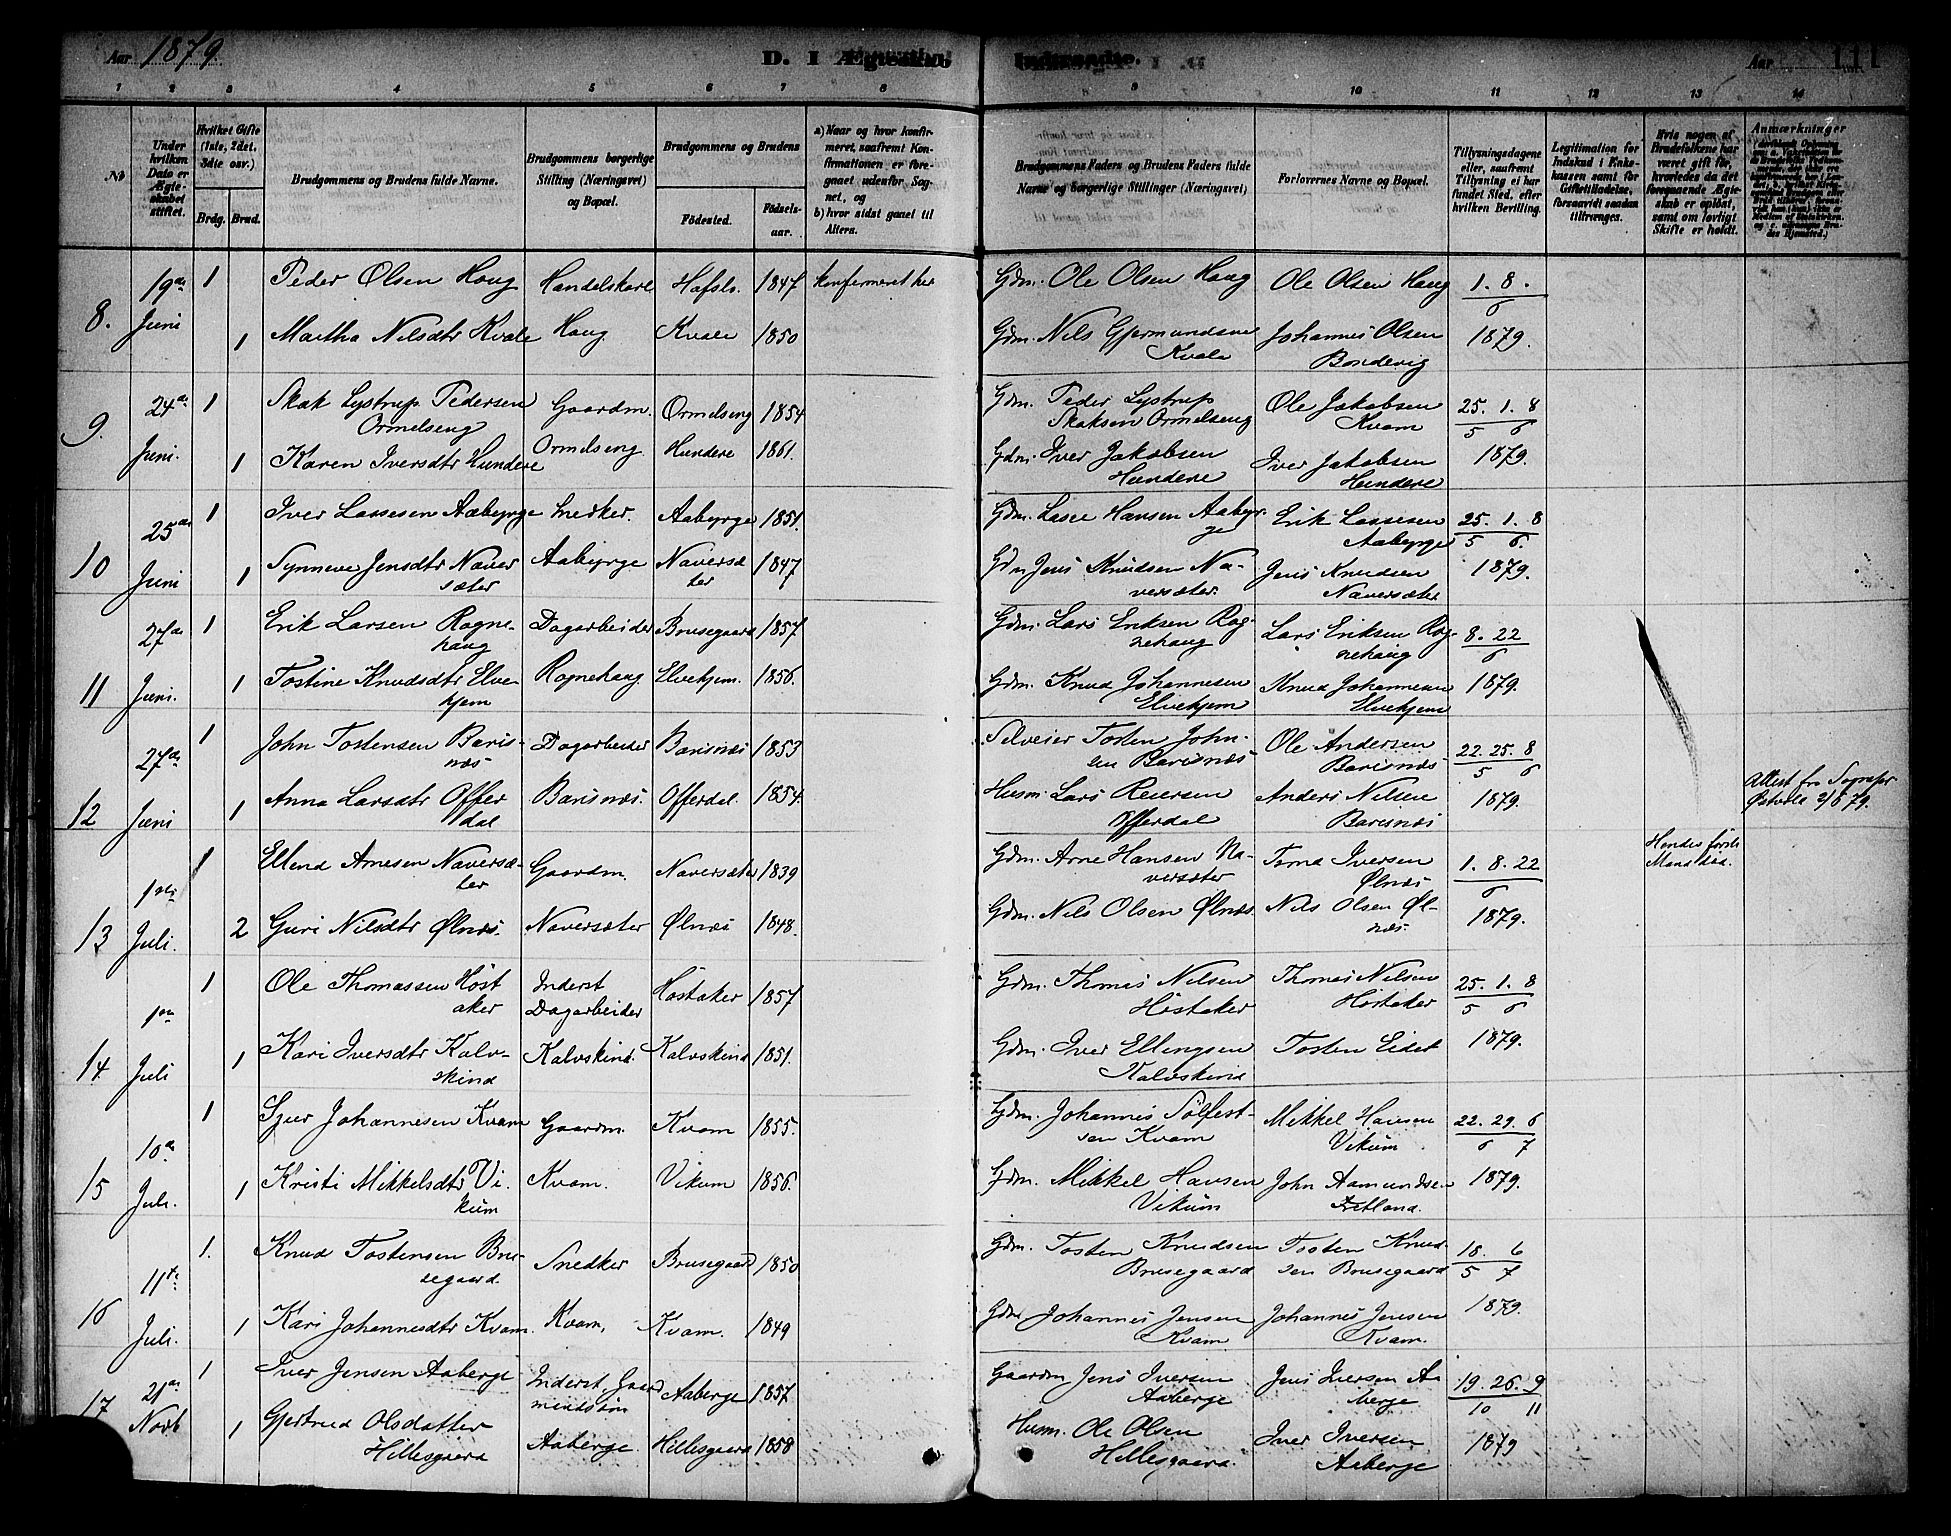 Aar 1879.
D. I Ægteskab
Indtraadte.
Aar
111
1 2 3 4 5 6 7 8 9 10 11 12 13 14
No
Under hvilken Dato er Ægteskabet stiftet.
Hvilket Gifte (1ste, 2det, 3die osv.)
Brdg. Brud.
Brudgommens og Brudens fulde Navne.
Brudgommens borgerlige Stilling (Næringsvei) og Bopæl.
Brudgommens og Brudens
Fødested. Fødselsaar.
a) Naar og hvor konfirmeret, saafremt Konfirmationen er foregaaet udenfor Sognet, og
b) hvor sidst gaaet til Alters.
Brudgommens Faders og Brudens Faders fulde Navne og borgerlige Stillinger (Næringsvei)
Forlovernes Navne og Bopæl.
Tillysningsdagene eller, saafremt Tillysning ei har fundet Sted, efter hvilken Bevilling.
Legitimation for Indskud i Enkekassen samt for Giftetilladelse, forsaavidt saadan tiltrænges.
Hvis nogen af Brudefolkene har været gift før, hvorledes da det foregaaende Ægteskab er opløst, samt om lovligt Skifte er holdt.
Anmærkninger
8. 19de Juni 1 Peder Olsen Haug Handelskarl Hafslo. 1847 konfirmeret her Gdm. Ole Olsen Haug Ole Olsen Haug 1. 8. / 6
1 Martha Nilsdtr Kvale Haug Kvale 1850 Gdm. Nils Gjermundsen Kvale Johannes Olsen Bondevig 1879.
9. 24de Juni. 1 Skak Lystrup Pedersen Ormelseng Gaardm. Ormelseng 1854 Gdm. Peder Lystrup Skaksen Ormelseng Ole Jakobsen Kvam 25. 1. 8 / 5 6
1 Karen Iversdtr Hundere Ormelseng Hundere 1861. Gdm. Iver Jakobsen Hundere Iver Jakobsen Hundere 1879.
10 25de Juni 1 Iver Lassesen Aabyrge Snedker. Aabyrge 1851. Gdm. Lasse Hansen Aabyrge Erik Lassesen Aabyrge 25. 1. 8 / 5 6.
1 Synneve Jensdtr Naversæter Aabyrge Naversæter 1847 Gdm Jens Knudsen Naversæter. Jens Knudsen Naversæter 1879.
11 27de Juni. 1 Erik Larsen Rognehaug Dagarbeider Brusegaard 1857 Gdm. Lars Eriksen Rognehaug Lars Eriksen Rognehaug 8. 22 / 6
1 Tostine Knudsdtr Elvekjem Rognehaug Elvekjem. 1856. Gdm. Knud Johannesen Elvekjem Knud Johannesen Elvekjem 1879.
12 27de Juni 1 John Tostensen Barisnæs Dagarbeider Barisnæs 1853 Selveier Tosten Johnsen Barisnæs Ole Andersen Barisnæs 22. 25. 8 / 5 6
1 Anna Larsdtr Offerdal Barisnæs. Offerdal. 1854. Husm. Lars Reiersen Offerdal Anders Nilsen Barisnæs 1879. Attest fra Sognepr
13 1ste Juli. 1 Ellend Arnesen Naversæter Gaardm. Naversæter 1839 Gdm. Arne Hansen Naversæter Iversen Ølnæs 1. 8. 22 / 6 Hendes første Mand død.
2 Guri Nilsdtr Ølnæs. Naversæter Ølnæs 1848. Gdm. Nils Olsen Ølnæs. Nils Olsen Ølnæs. 1879.
14 Juli 1 Ole Thomassen Høstaker Inderst Dagarbeider Høstaker 1857 Gdm. Thomas Nilsen Høstaker Thomas Nilsen Høstaker 25. 1. 8 / 5 6
1 Kari Iversdtr Kalvskind Kalvskind. Kalvskind 1851. Gdm. Iver Ellingsen Kalvskind Tosten Eidet 1879.
15 10de Juli. 1 Sjur Johannesen Kvam Gaardm. Kvam 1855. Gdm. Johannes Sølfestsen Kvam Mikkel Hansen Vikum 22. 29. 6 / 6 7
1 Kristi Mikkelsdtr Vikum Kvam. Vikum 1856. Gdm. Mikkel Hansen Vikum John Aamundsen Fretland. 1879.
16 11te Juli. 1. Knud Tostensen Brusegaard Snedker Brusegaard 1850 Gdm. Tosten Knudsen Brusegaard Tosten Knudsen Brusegaard 18. 6 / 5 7
1 Kari Johannesdtr Kvam. Kvam. Kvam. 1849 Gdm Johannes Jensen Kvam Johannes Jensen Kvam. 1879.
17 21de Novb 1 Iver Jensen Aaberge Inderst Gaardmandssøn Aaberge 1857 Gaardm Jens Iversen Aaberge Jens Iversen Aaberge 19. 26. 9 / 10 11
1 Gjertrud Olsdatter Hillesgaard Aaberge. Hillesgaard 1858 Husm. Ole Olsen Hillesgaard. Iver Iversen Aaberge 1879